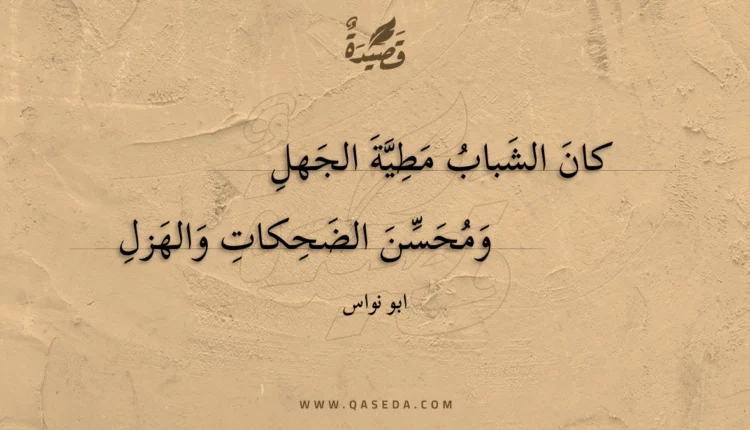 قَصِيدَةٌ
كانَ الشَبابُ مَطِيَّةَ الجَهلِ
وَمُحَسِّنَ الضَحِكاتِ وَالهَزلِ
ابو نواس
WWW.QASEDA.COM